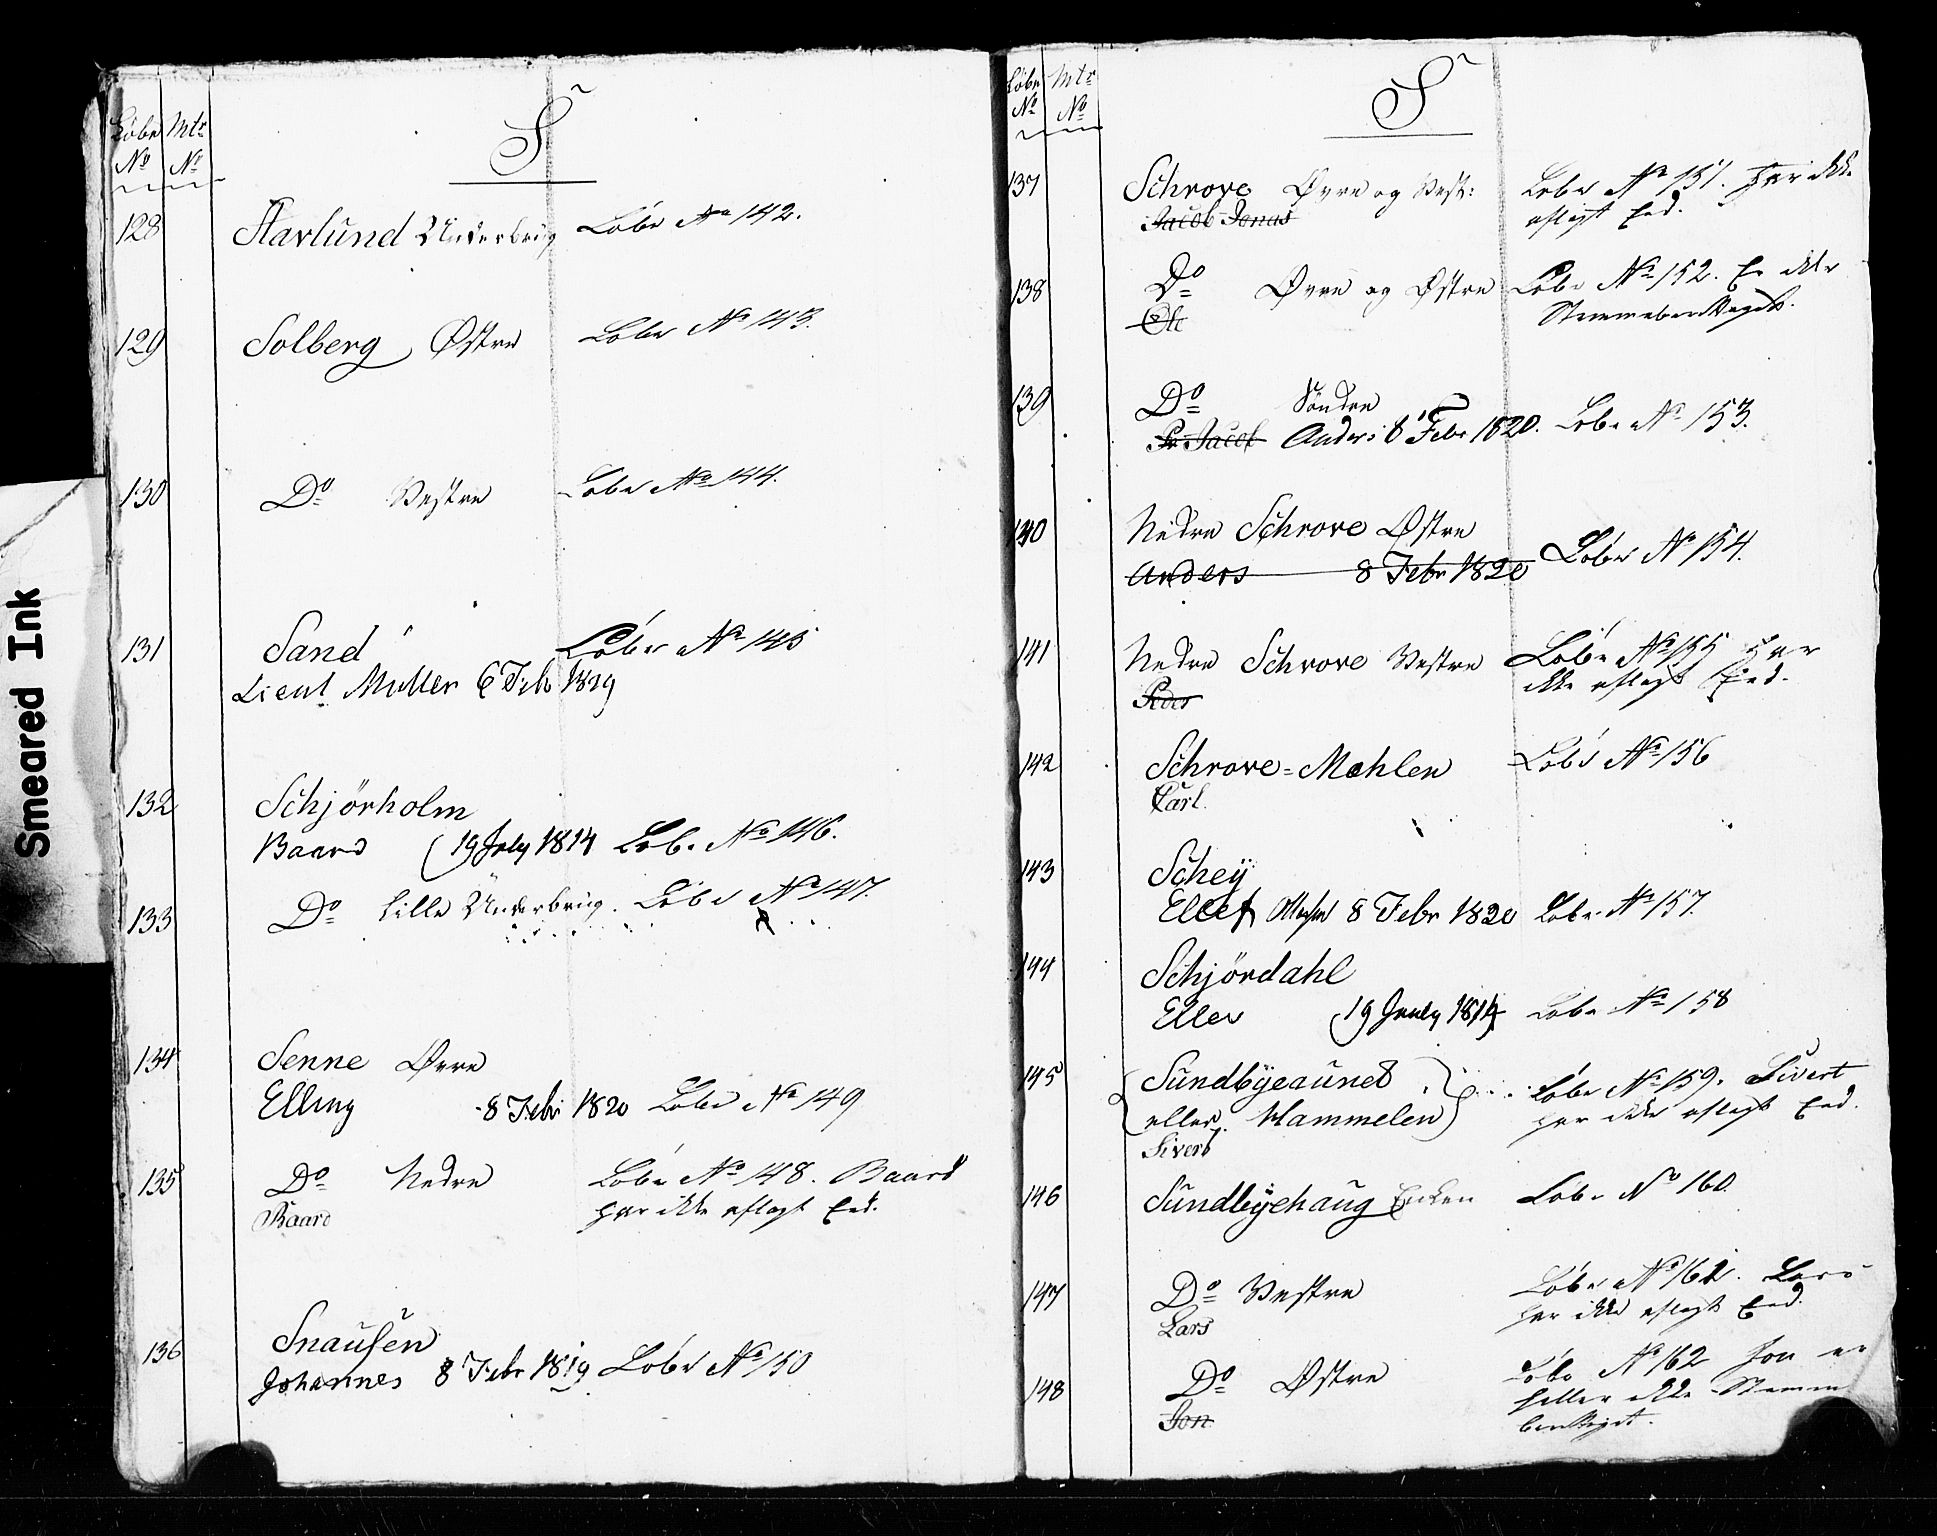 Smeared Ink
Löbe Mtr
No No
S
128 Starlund Underbrug Löbe No 142.
129 Solberg Østre Löbe No 143.
130 Do Vestre Löbe No 144.
131 Sand Löbe No 145
Lieut Muller 6 Feb 1819
132 Schjörholm
Baard 19 July 1814 Löbe No 146.
133 Do Lille Underbrug. Löbe No 147.
134 Senne Øvre
Elling 8 Febr 1820 Löbe No 149
135 Do Nedre Löbe No 148. Baard
Baard har ikke aflagt Eed.
136 Snausen
Johannes 8 Febr 1819 Löbe No 150
Löbe Mtr
No No
S
137 Schrove Øvre og Vest: Löbe No 151. har ikke
Jacob Jonas aflagt Eed.
138 Do Øvre og Østre Löbe No 152. Er ikke
Ole Stemmeberettiget.
139 Do Söndre
Jacob Anders 8 Febr 1820. Löbe No 153.
140 Nedre Schrove Østre
Anders 8 Febr 1820 Löbe No 154.
141 Nedre Schrove Vestre Löbe No 155 har
Peder ikke aflagt Eed.
142 Schrove=Mohlen Löbe No 156
Carl.
143 Schey
Ellef 8 Febr 1820 Löbe No 157.
144 Schjördahl
Ellev 19 July 1814 Löbe No 158
145 Sundbyeaunet Löbe No 159. Sivert
eller Hammelen har ikke aflagt Eed.
Sivert
146 Sundbyehaug Löbe No 160.
147 Do Vestre Löbe No 161. Lars
Lars har ikke aflagt Eed.
148 Do Østre Löbe No 162 Jon er
Jon heller ikke Stemme
berettiget.